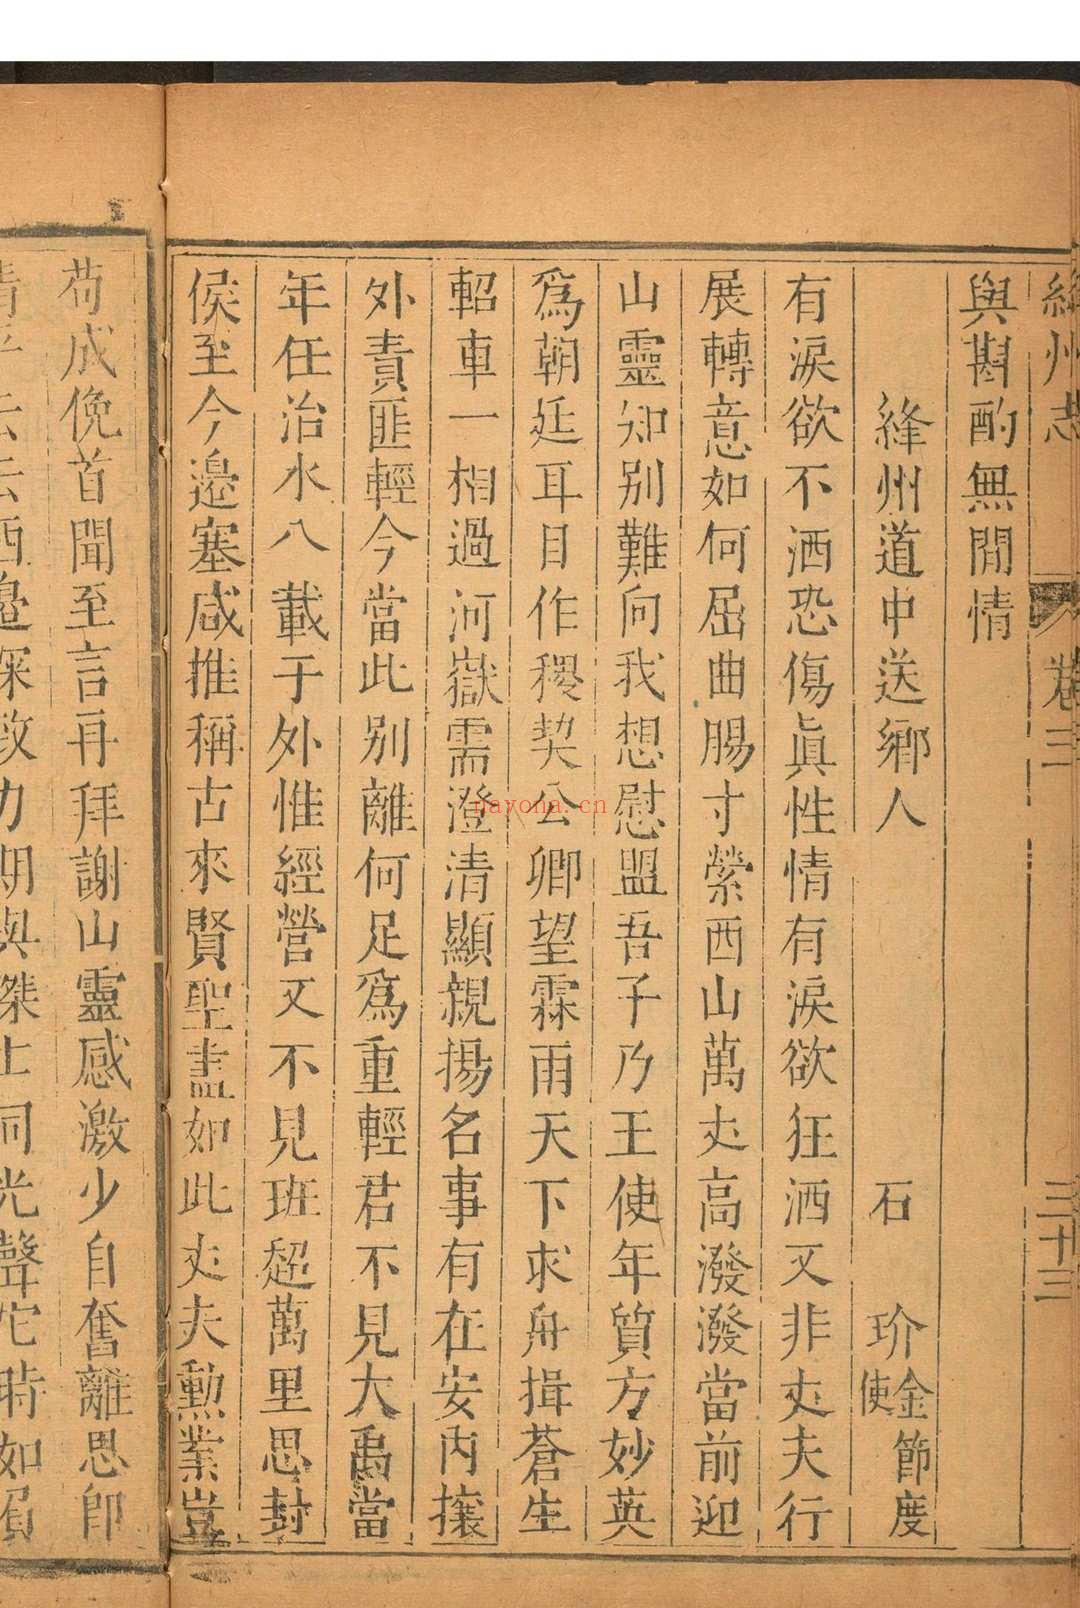 絳州志
卷三
三十三
與斟酌無閒情
絳州道中送鄉人
石 玠 金節度使
有淚欲不洒恐傷眞性情有淚欲狂洒又非丈夫行
展轉意如何屈曲腸寸縈西山萬丈高潑潑當前迎
山靈知別難向我想慰盟吾子乃王使年質方妙英
爲朝廷耳目作稷契公卿望霖雨天下求舟揖蒼生
軺車一相過河嶽需澄清顯親揚名事有在安內攘
外責匪輕今當此別離何足爲重輕君不見大禹當
年任治水八載于外惟經營又不見班超萬里思封
侯至今邊塞咸推稱古來賢聖盡如此丈夫勲業豈
苟成俛首聞至言再拜謝山靈感激少自奮離思卽
西邊深致力期與桀士同光聲它時如
nayona.cn